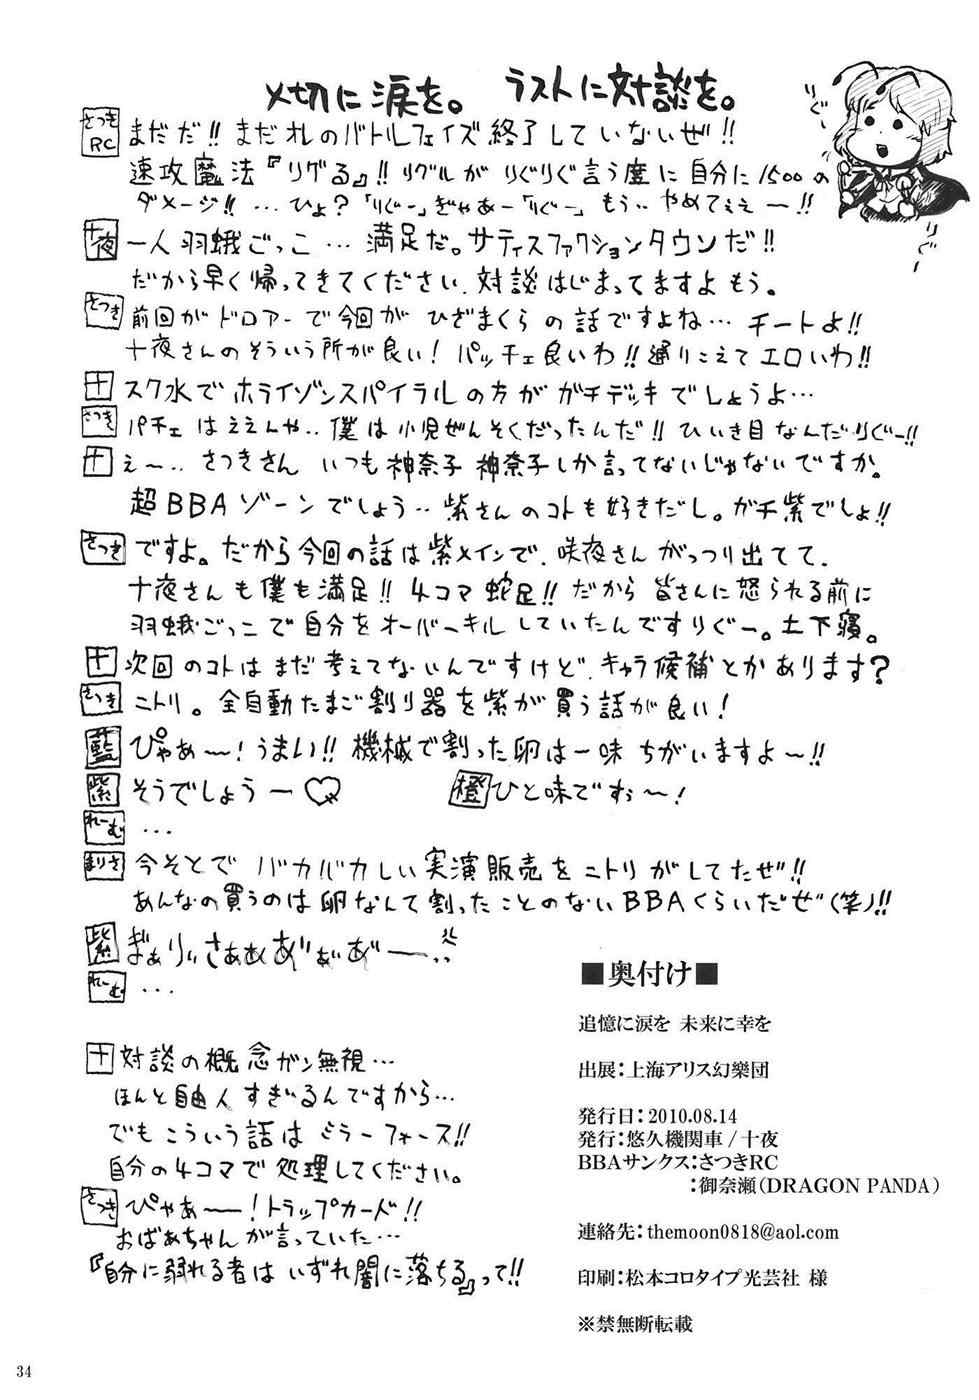 〆切に涙を。 ラストに対談を。
さつきRC まだだ!! まだオレのバトルフェイズ終了していないぜ!!
速攻魔法『リグる』!! リグルがりぐりぐ言う度に自分に1500の
ダメージ!! …ひょ?「りぐー」ぎゃあー「りぐー」もう…やめてぇぇー!!
りぐー
りぐー!
十夜 一人羽蛾ごっこ…満足だ。サティスファクションタウンだ!!
だから早く帰ってきてください、対談はじまってますよもう。
さつき 前回がドロアーで今回がひざまくらの話ですよね…チートよ!!
十夜さんのそういう所が良い! パッチェ良いわ!! 通りこえてエロいわ!!
十 スク水でホライゾンスパイラルの方がガチデッキでしょうよ…
さつき パチェはええんや..僕は小児ぜんそくだったんだ!! ひいき目なんだりぐー!!
十 えー.. さつきさんいつも神奈子神奈子しか言ってないじゃないですか。
超BBAゾーンでしょう..紫さんのコトも好きだし。ガチ紫でしょ!!
さつき ですよ。だから今回の話は紫メインで、咲夜さんがっつり出てて、
十夜さんも僕も満足!! 4コマ蛇足!! だから皆さんに怒られる前に
羽蛾ごっこで自分をオーバーキルしていたんですりぐー。土下寝。
十 次回のコトはまだ考えてないんですけど、キャラ候補とかあります?
さつき ニトリ。全自動たまご割り器を紫が買う話が良い!
藍 ぴゃあ〜!うまい!! 機械で割った卵は一味ちがいますよ〜!!
紫 そうでしょうー♡ 橙 ひと味ですぅ〜!
れーむ …
まりさ 今そとでバカバカしい実演販売をニトリがしてたぜ!!
あんなの買うのは卵なんて割ったことのないBBAくらいだぜ(笑)!!
紫 まぁりぃさぁぁあ゛ぁ゛ぁ゛ー…
れーむ …
十 対談の概念ガン無視…
ほんと自由人すぎるんですから…
でもこういう話はミラーフォース!!
自分の4コマで処理してください。
さつき ぴゃあ〜!トラップカード!!
おばあちゃんが言っていた…
『自分に溺れる者はいずれ闇に落ちる』って!!
■奥付け■
追憶に涙を 未来に幸を
出展:上海アリス幻樂団
発行日:2010.08.14
発行:悠久機関車/十夜
BBAサンクス:さつきRC
:御奈瀬(DRAGON PANDA)
連絡先:themoon0818@aol.com
印刷:松本コロタイプ光芸社 様
※禁無断転載
34